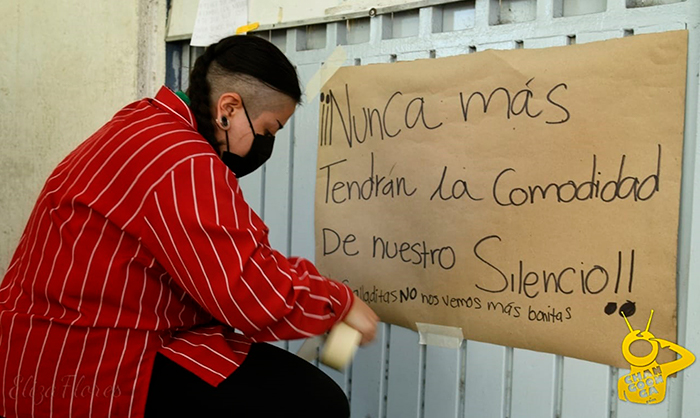 ¡¡¡Nunca más
Tendrán la Comodidad
De nuestro Silencio!!
Calladitas NO nos vemos más bonitas
Elize Flores
CHAN
GOON
GA